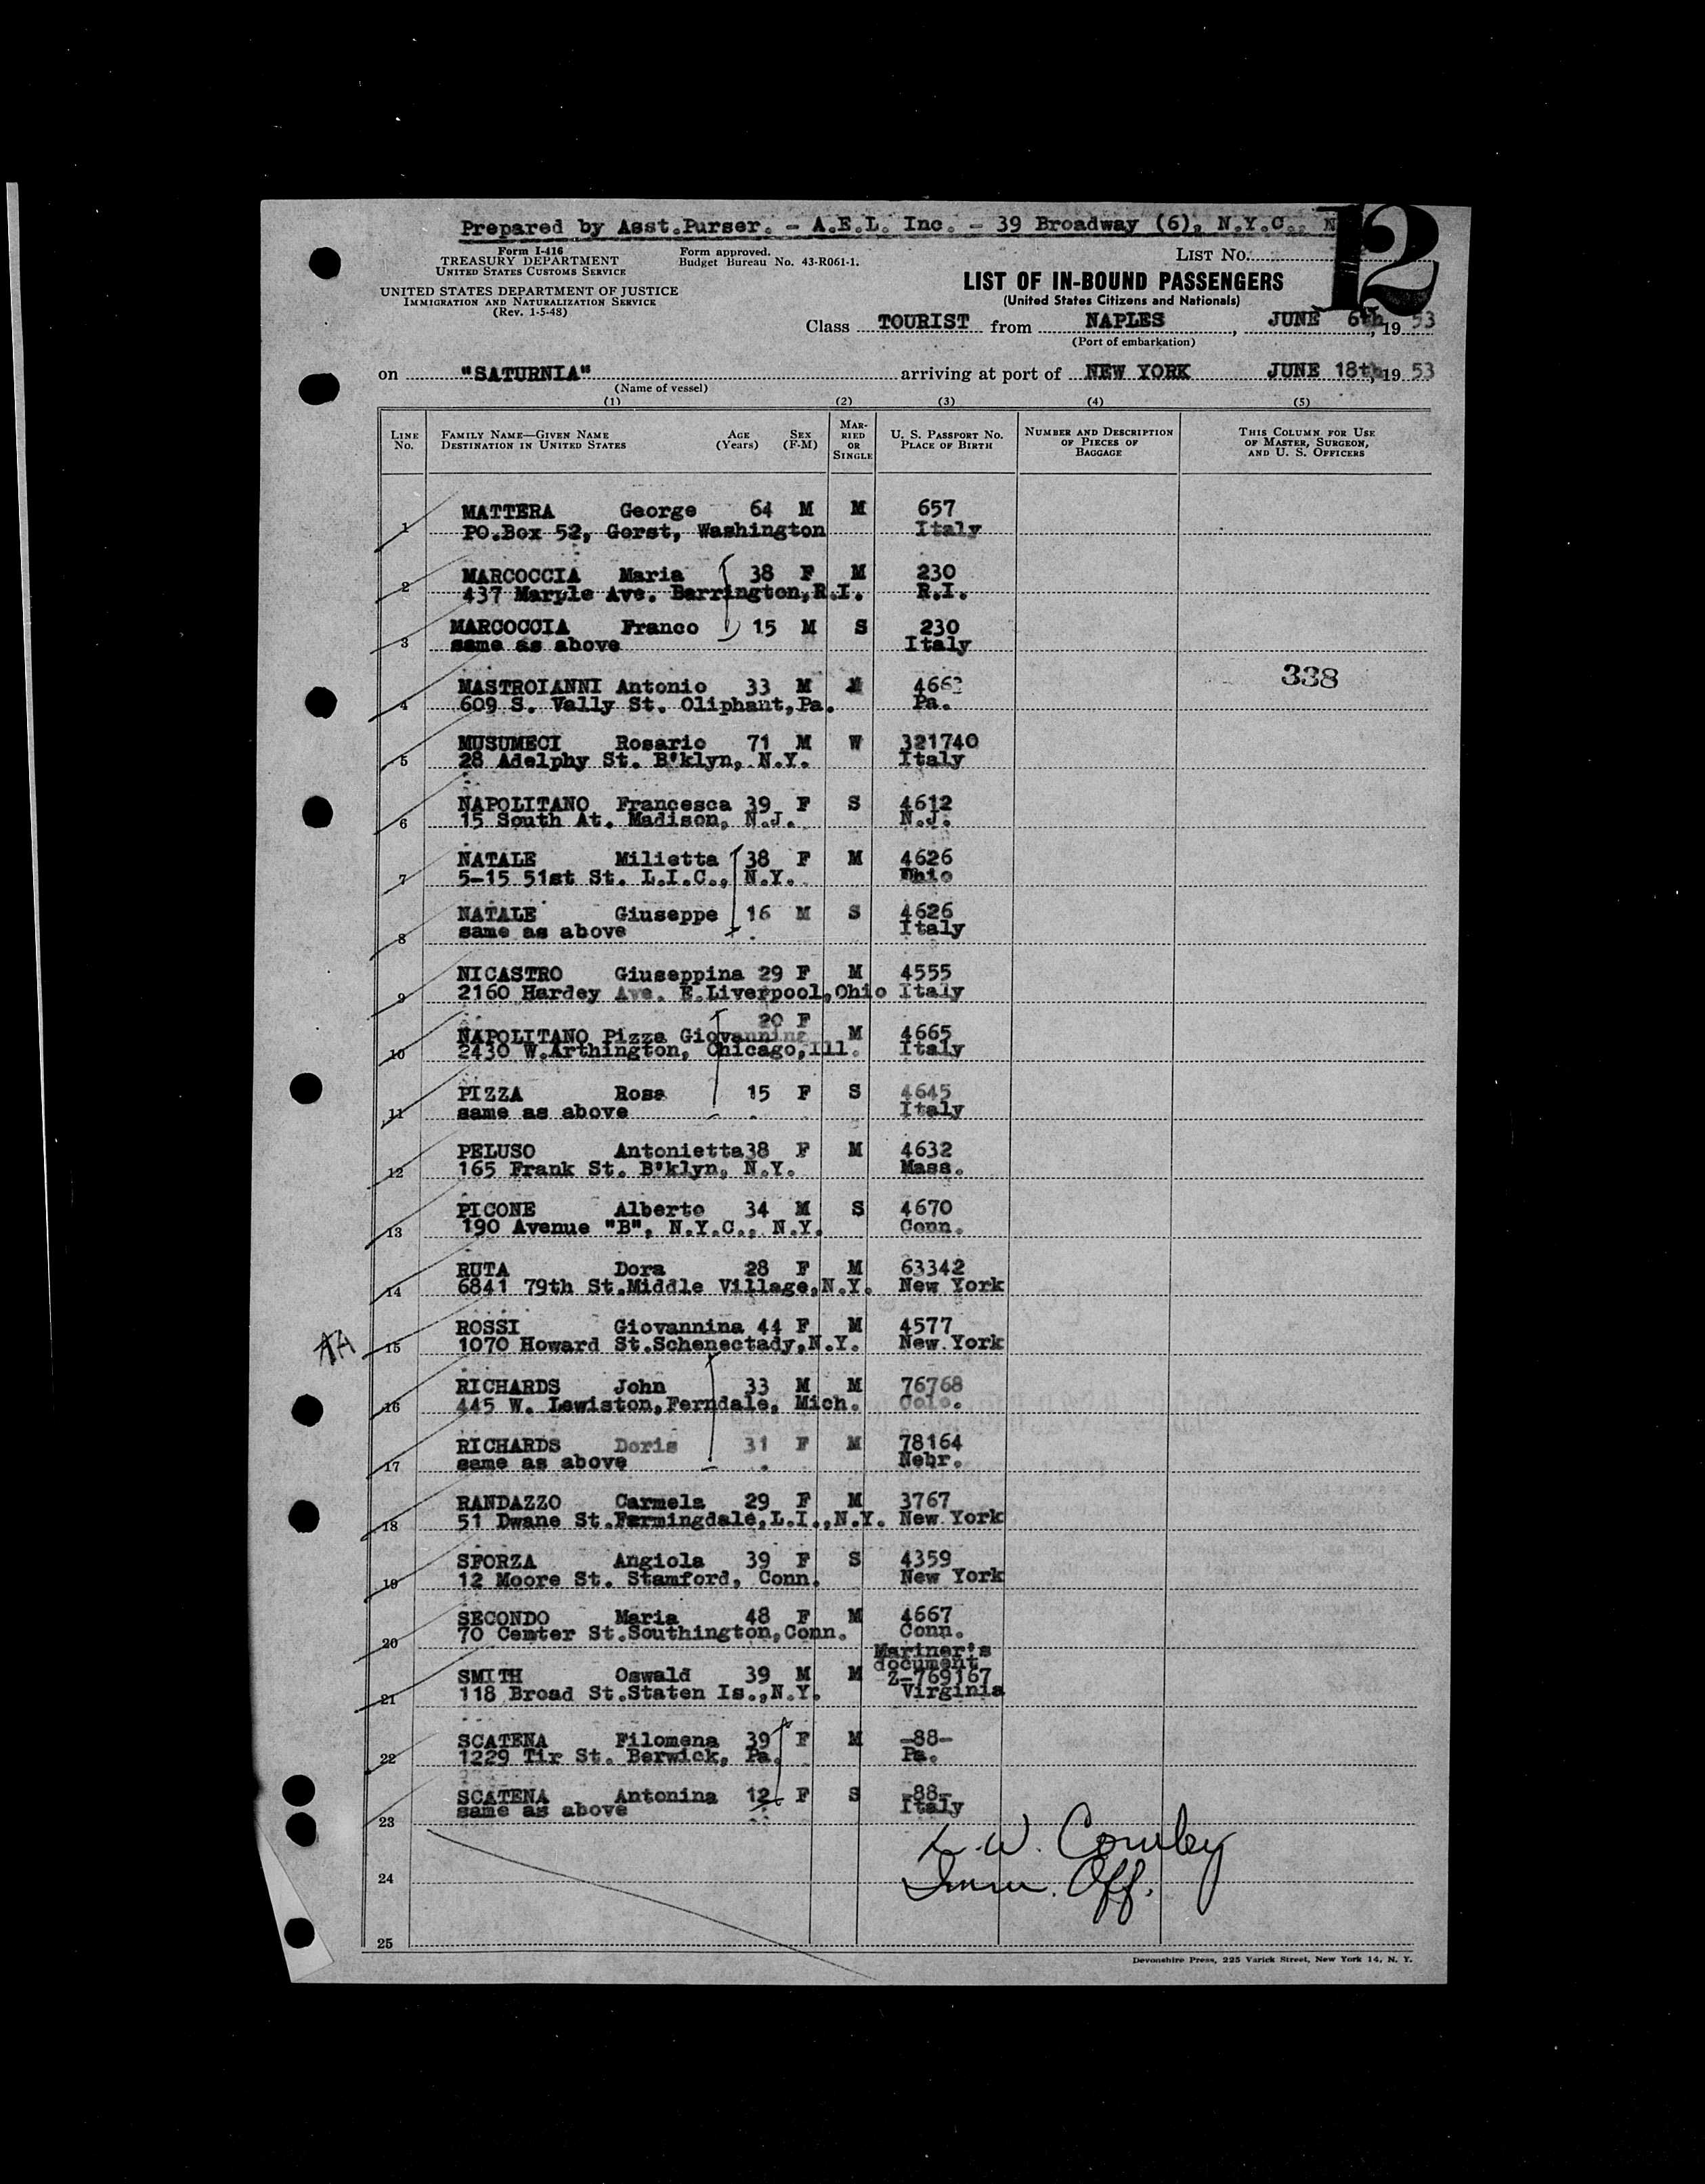 Prepared by Asst.Purser. - A.E.L. Inc. - 39 Broadway (6), N.Y.C., N
12
Form I-416
TREASURY DEPARTMENT
UNITED STATES CUSTOMS SERVICE
Form approved.
Budget Bureau No. 43-R061-1.
LIST NO.
UNITED STATES DEPARTMENT OF JUSTICE
IMMIGRATION AND NATURALIZATION SERVICE
(Rev. 1-5-48)
LIST OF IN-BOUND PASSENGERS
(United States Citizens and Nationals)
Class TOURIST from NAPLES, JUNE 6th, 19 53
(Port of embarkation)
on "SATURNIA" arriving at port of NEW YORK JUNE 18th, 19 53
(Name of vessel)
(1) (2) (3) (4) (5)
LINE NO. FAMILY NAME—GIVEN NAME DESTINATION IN UNITED STATES AGE (Years) SEX (F-M) MARRIED OR SINGLE U. S. PASSPORT NO. PLACE OF BIRTH NUMBER AND DESCRIPTION OF PIECES OF BAGGAGE THIS COLUMN FOR USE OF MASTER, SURGEON, AND U. S. OFFICERS
MATTERA George 64 M M 657
1 PO.Box 52, Gorst, Washington Italy
MARCOCCIA Maria 38 F M 230
2 437 Marple Ave. Barrington,R.I. R.I.
MARCOCCIA Franco 15 M S 230
3 same as above Italy
338
MASTROIANNI Antonio 33 M M
4 609 S. Vally St. Oliphant,Pa. Pa.
MUSUMECI Rosario 71 M W 321740
5 28 Adelphy St. B'klyn, N.Y. Italy
NAPOLITANO Francesca 39 F S 4612
6 15 South At. Madison, N.J. N.J.
NATALE Milietta 38 F M 4626
7 5-15 51st St. L.I.C., N.Y. Ohio
NATALE Giuseppe 16 M S 4626
8 same as above Italy
NICASTRO Giuseppina 29 F M 4555
9 2160 Hardey Ave. E.Liverpool,Ohio Italy
20 F
NAPOLITANO Pizza Giovannina M 4665
10 2430 W.Arthington, Chicago,Ill. Italy
PIZZA Rosa 15 F S 4645
11 same as above Italy
PELUSO Antonietta38 F M 4632
12 165 Frank St. B'klyn, N.Y. Mass.
PICONE Alberto 34 M S 4670
13 190 Avenue "B", N.Y.C., N.Y. Conn.
RUTA Dora 28 F M 63342
14 6841 79th St.Middle Village,N.Y. New York
ROSSI Giovannina 44 F M 4577
15 1070 Howard St.Schenectady,N.Y. New York
RICHARDS John 33 M M 76768
16 445 W. Lewiston,Ferndale, Mich. Colo.
RICHARDS Doris 31 F M 78164
17 same as above Nebr.
RANDAZZO Carmela 29 F M 3767
18 51 Dwane St.Farmingdale,L.I.,N.Y. New York
SFORZA Angiola 39 F S 4359
19 12 Moore St. Stamford, Conn. New York
SECONDO Maria 48 F M 4667
20 70 Center St.Southington,Conn. Conn.
Mariner's
document
SMITH Oswald 39 M M Z-769167
21 118 Broad St.Staten Is.,N.Y. Virginia
SCATENA Filomena 39 F M -88-
22 1229 Tir St. Berwick, Pa. Pa.
SCATENA Antonina 12 F S -88-
23 same as above Italy
W. Cowley
24 Imm. Off.
25
Devonshire Press, 225 Varick Street, New York 14, N. Y.